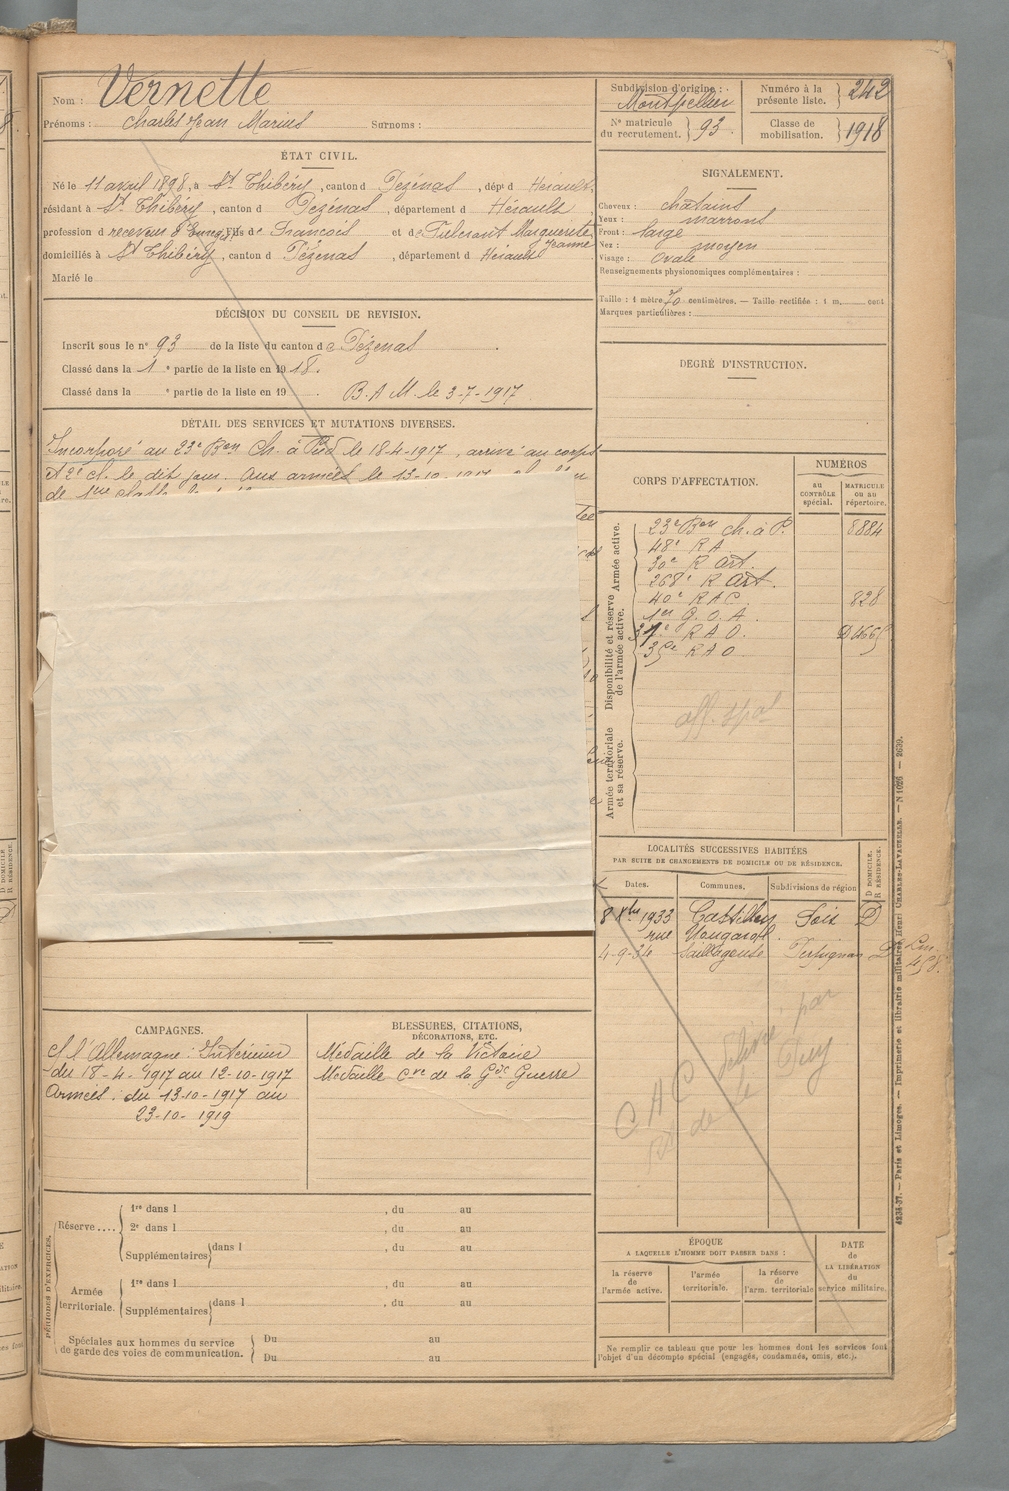 Nom : Vernette
Prénoms : Charles Jean Marius Surnoms :
Subdivision d'origine : Montpellier
Numéro à la présente liste. } 242
N° matricule du recrutement. } 93.
Classe de mobilisation. } 1918
ÉTAT CIVIL.
Né le 11 avril 1898, à St Thibéry, canton d Pézenas, dépt d Hérault,
résidant à St Thibéry, canton d Pézenas, département d Hérault,
profession d receveur d'Enreg. Fils de François et de Pulcrant Marguerite
Jeanne
domiciliés à St Thibéry, canton d Pézenas, département d Hérault
Marié le
DÉCISION DU CONSEIL DE REVISION.
Inscrit sous le n° 93 de la liste du canton de Pézenas.
Classé dans la 1e partie de la liste en 1918.
Classé dans la e partie de la liste en 19 . B.A M. le 3-7-1917
DÉTAIL DES SERVICES ET MUTATIONS DIVERSES.
Incorporé au 23e Bon Ch. à Pied le 18-4-1917, arrivé au corps
et 2e cl. le dit jour. Aux armées le 13-10
de 1ère classe
SIGNALEMENT.
Cheveux : châtains
Yeux : marrons
Front : large
Nez : moyen
Visage : ovale
Renseignements physionomiques complémentaires :
Taille : 1 mètre 70 centimètres. — Taille rectifiée : 1 m. cent
Marques particulières :
DEGRÉ D'INSTRUCTION.
CORPS D'AFFECTATION.
NUMÉROS
au CONTRÔLE spécial.
MATRICULE ou au répertoire.
Armée active.
Disponibilité et réserve de l'armée active.
Armée territoriale et sa réserve.
23e Bon Ch. à P. 8884
48e R A
30e R Art.
268e R Art.
40e RAC. 828
1er G. O. A.
37e R A D. D 4665
35e R A D.
aff. spal
LOCALITÉS SUCCESSIVES HABITÉES
PAR SUITE DE CHANGEMENTS DE DOMICILE OU DE RÉSIDENCE.
Dates. Communes. Subdivisions de région D DOMICILE. R RÉSIDENCE.
8 Xbre 1933 D
rue
4-9-34 Saillagouse Perpignan D
C A C délivré par
de Le Puy
CAMPAGNES.
Ct l'Allemagne : Intérieur
du 18-4-1917 au 12-10-1917
Armées. du 13-10-1917 au
23-10-1919
BLESSURES, CITATIONS,
DÉCORATIONS, ETC.
Médaille de la Victoire
Médaille Cve de la Gde Guerre
PÉRIODES D'EXERCICES.
Réserve....
1re dans l , du au
2e dans l , du au
Supplémentaires dans l , du au
Armée territoriale.
1re dans l , du au
Supplémentaires dans l , du au
Spéciales aux hommes du service
de garde des voies de communication.
Du au
Du au
ÉPOQUE
A LAQUELLE L'HOMME DOIT PASSER DANS :
la réserve de l'armée active.
l'armée territoriale.
la réserve de l'arm. territoriale
DATE de LA LIBÉRATION du service militaire.
Ne remplir ce tableau que pour les hommes dont les services font
l'objet d'un décompte spécial (engagés, condamnés, omis, etc.).
4231-37. — Paris et Limoges. — Imprimerie et librairie militaires Henri CHARLES-LAVAUZELLE. — N 1026 — 2639.